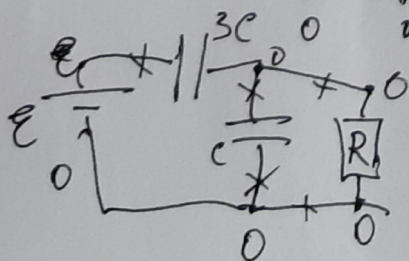 3C 0
ℰ 0 0
ℰ
C R
0
0 0